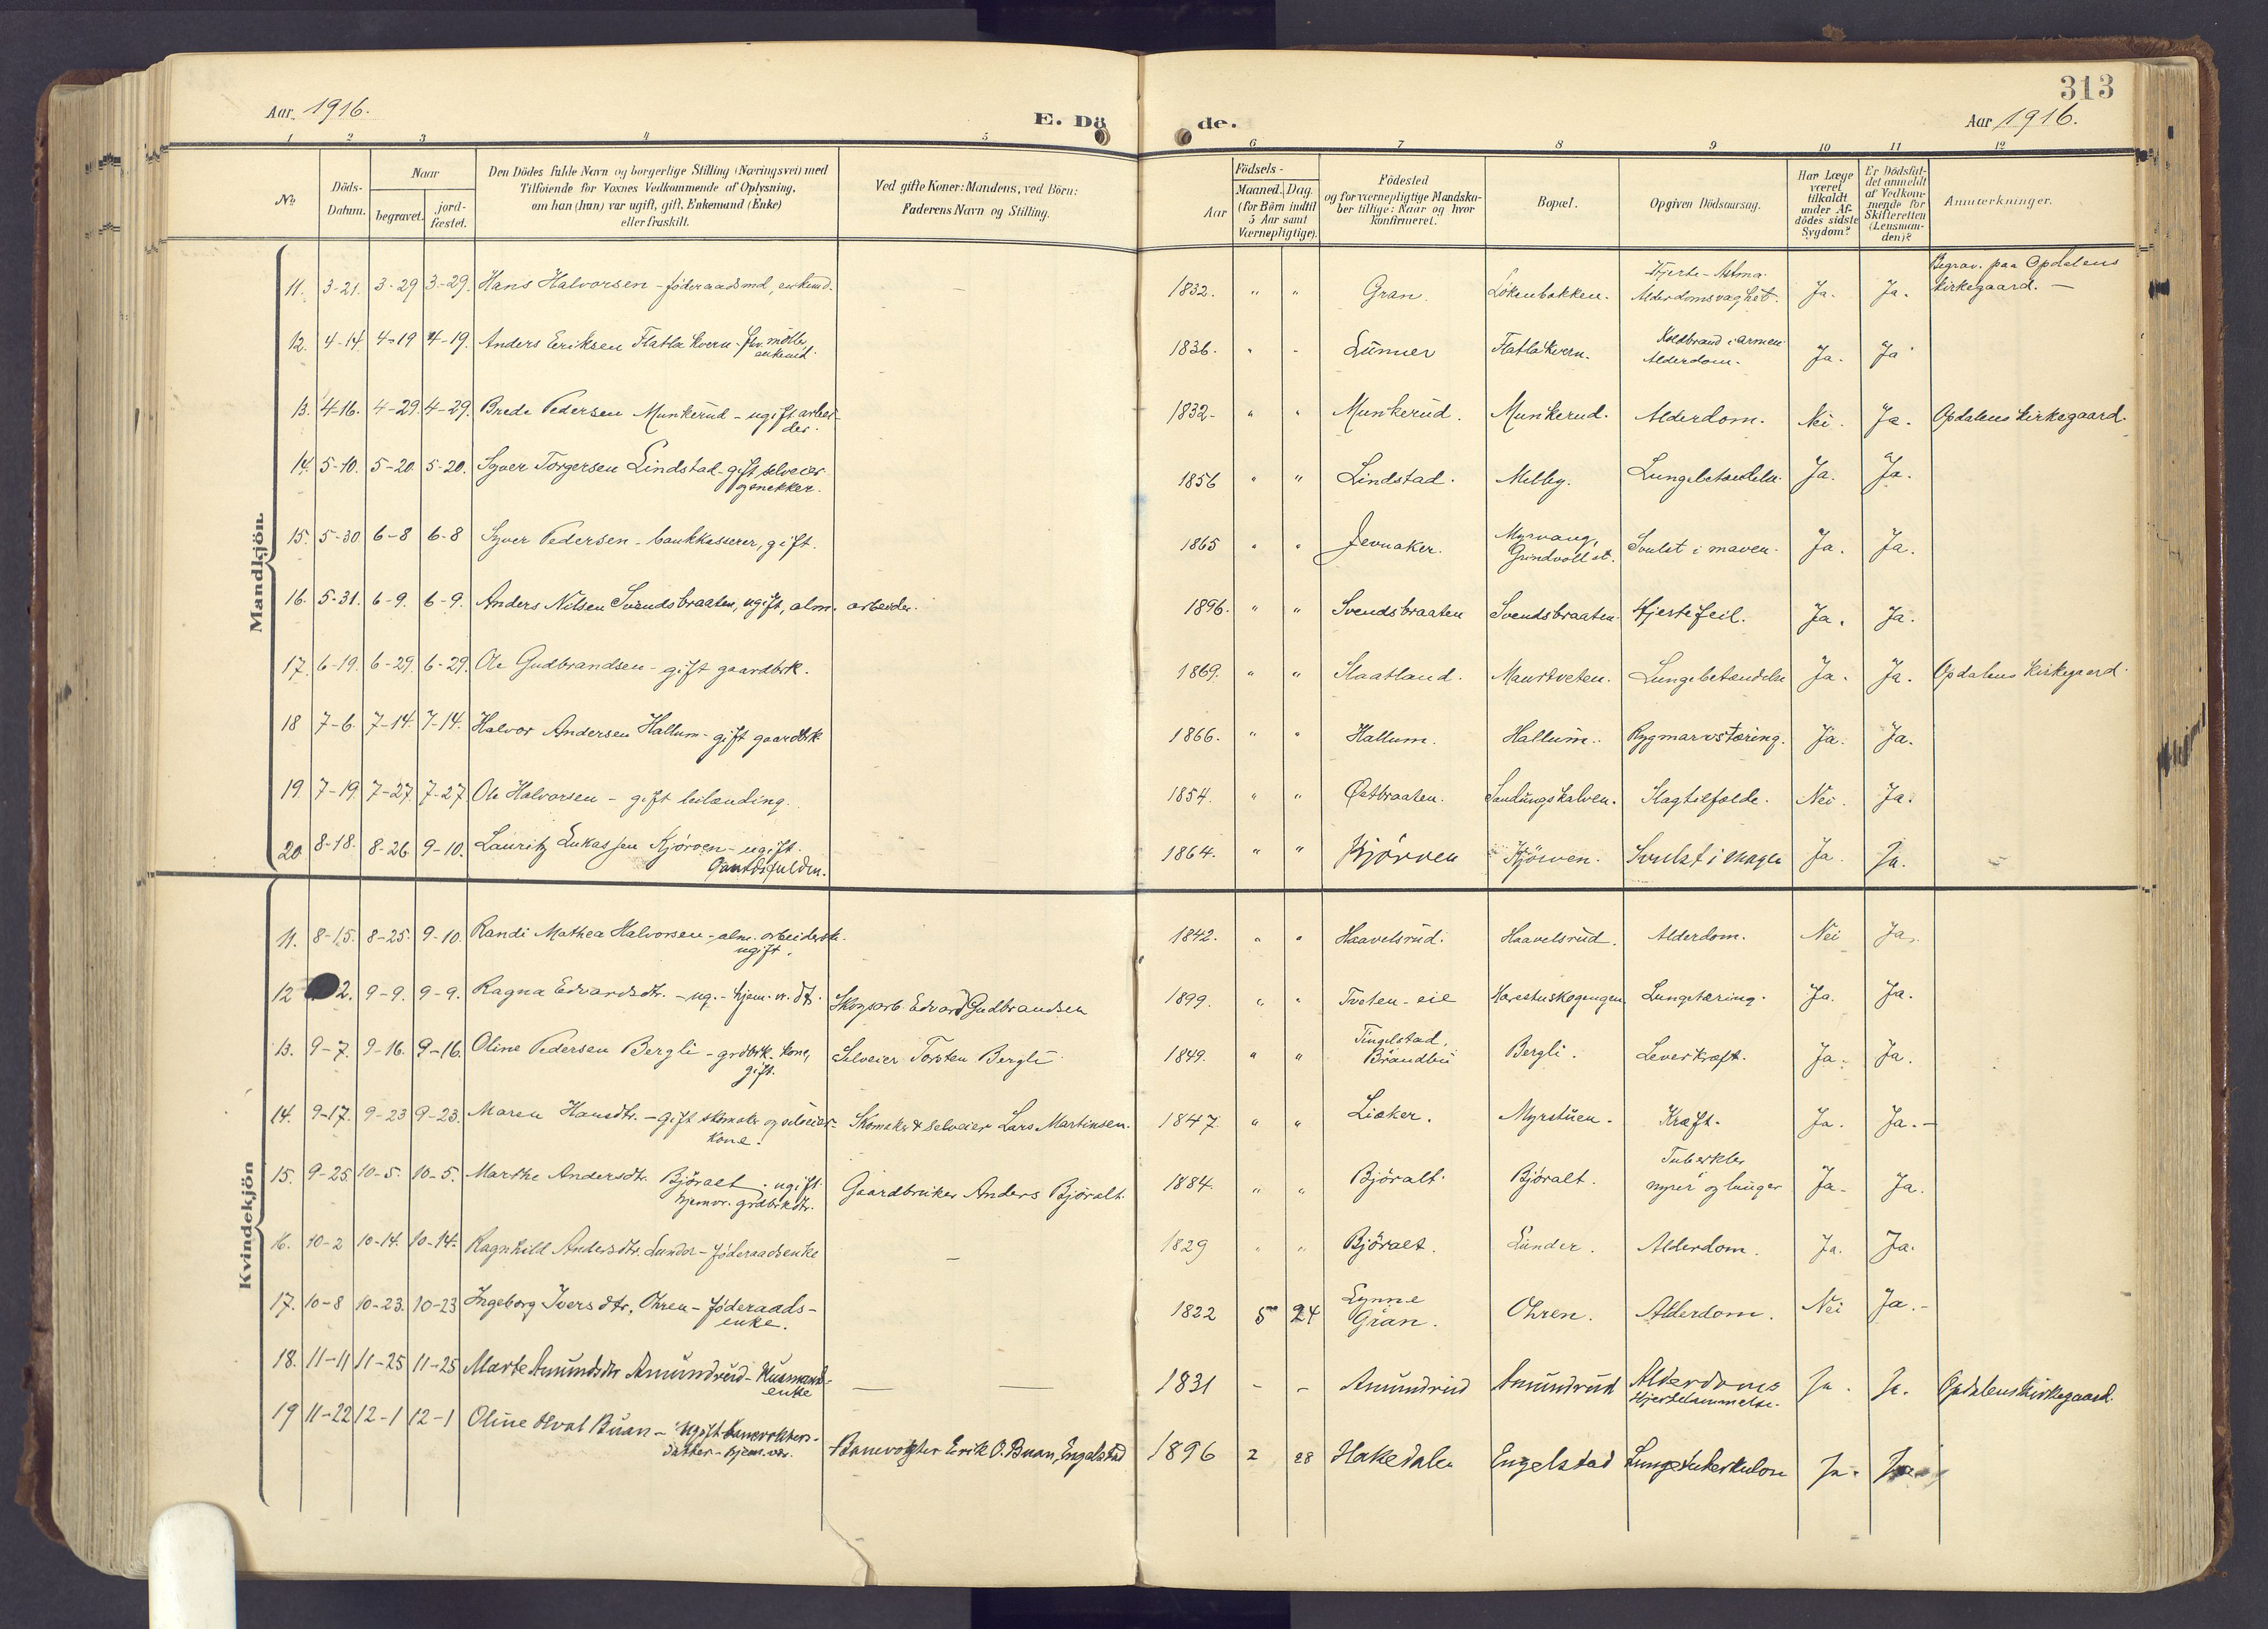 313
Aar 1916.
E. Dö
de.
Aar 1916.
1 2 3 4 5 6 7 8 9 10 11 12
No
Döds-Datum.
Naar
begravet.
jord-fæstet.
Den Dödes fulde Navn og borgerlige Stilling (Næringsvei) med
Tilföiende for Voxnes Vedkommende af Oplysning,
om han (hun) var ugift, gift, Enkemand (Enke)
eller fraskilt.
Ved gifte Koner: Mandens, ved Börn:
Faderens Navn og Stilling.
Födsels-
Aar
Maaned. Dag.
(for Börn indtil
5 Aar samt
Værnepligtige).
Födested
og for værnepligtige Mandska-
ber tillige: Naar og hvor
konfirmeret.
Bopæl.
Opgiven Dödsaarsag.
Har Læge
været
tilkaldt
under Af-
dödes sidste
Sygdom?
Er Dödsfal-
det anmeldt
af Vedkom-
mende for
Skifteretten
(Lensman-
den)?
Anmærkninger.
Mandkjön.
11. 3-21. 3-29 3-29. Hans Halvorsen - föderaadsmd, enkemd. — 1832. " " Gran. Lökenbakken. Hjerte-Astma. Alderdomsvaghet. Ja. Ja. Begrav. paa Opdalens kirkegaard. —
12. 4-14. 4-19 4-19. Anders Eriksen Flatla kvern - fhv. mölle, enkemd. 1836. " " Lunner Flatla kvern. Koldbrand i armen Alderdom. Ja. Ja
13. 4-16. 4-29. 4-29. Brede Pedersen Munkerud - ugift arbei-der. 1832. " " Munkerud. Munkerud. Alderdom. Nei. Ja. Opdalens kirkegaard.
14. 5-10. 5-20. 5-20. Syver Torgersen Lindstad - gift selveier og snekker. 1856 " " Lindstad. Melby. Lungebetændelse. Ja. Ja.
15. 5-30. 6-8 6-8 Syver Pedersen - bankkasserer, gift. 1865 " " Jevnaker. Myrvang, Grindvoll st. Svulst i maven. Ja. Ja.
16. 5-31. 6-9. 6-9. Anders Nilsen Svendsbraaten, ugift, alm. arbeider. 1896. " " Svendsbraaten Svendsbraaten. Hjertefeil. Ja. Ja.
17. 6-19. 6-29. 6-29. Ole Gudbrandsen - gift gaardbrk. 1869. " " Slaatland. Maurtveten. Lungebetændelse Ja. Ja. Opdalens kirkegaard.
18 7-6. 7-14. 7-14. Halvor Andersen Hallum - gift gaardbrk. 1866. " " Hallum. Hallum. Rygmarvstæring. Ja. Ja.
19. 7-19. 7-27. 7-27. Ole Halvorsen - gift leilænding. 1854. " " Östbraaten. Sandungskalven. Slagtilfælde. Nei. Ja.
20. 8-18. 8-26. 9-10. Lauritz Lukassen Kjørven - ugift. 1864. " " Kjørven Kjørven. Svulst i magen Ja. Ja.
Kvindekjön
11. 8-15. 8-25. 9-10. Randi Mathea Halvorsen - alm. arbeiderske. ugift. 1842. " " Haavelsrud. Haavelsrud. Alderdom. Nei Ja.
12 2. 9-9. 9-9. Ragna Edvardsdtr. - ug. - hjem. v. dtr. Skogsarb. Edvard Gudbrandsen 1899. " " Tveten-eie Lungetæring. Ja. Ja.
13. 9-7. 9-16. 9-16. Oline Pedersen Bergli - grdbrk. kone, gift. Selveier Torsten Bergli 1849. " " Tingelstad, Brandbu Bergli. Leverkræft. Ja. Ja.
14. 9-17. 9-23 9-23. Maren Hansdtr. - gift skomaker og selveier-kone. Skomaker & selveier Lars Martinsen. 1847. " " Liaker. Myrstuen. Kræft. Ja. Ja. -
15. 9-25. 10-5. 10-5. Marthe Andersdtr. Björalt - ugift hjemv. grdbrkdtr. Gaardbruker Anders Björalt. 1884. " " Björalt. Björalt. Tuberkler nyrer og lunger Ja. Ja.
16. 10-2 10-14. 10-14. Ragnhild Andersdtr. Lunder - föderaadsenke — 1829 " " Björalt. Lunder. Alderdom. Ja. Ja.
17. 10-8 10-23. 10-23 Ingeborg Iversdtr. Ohren - föderaads-enke. 1822 5 24 Lynne Gran. Ohren. Alderdom. Nei Ja. -
18. 11-11 11-25 11-25 Marte Amundsdtr Amundrud - Husmands-enke — — 1831 - - Amundrud Amundrud Alderdoms Hjertelammelse. Ja. Ja. Opdalens kirkegaard.
19 11-22 12-1 12-1 Oline Hval Buan - Ugift banevokters-datter - hjem. vær. Banevogter Erik O. Buan, Engelstad 1896 2 28 Hakedalen Engelstad Lungetuberkulose Ja. Ja